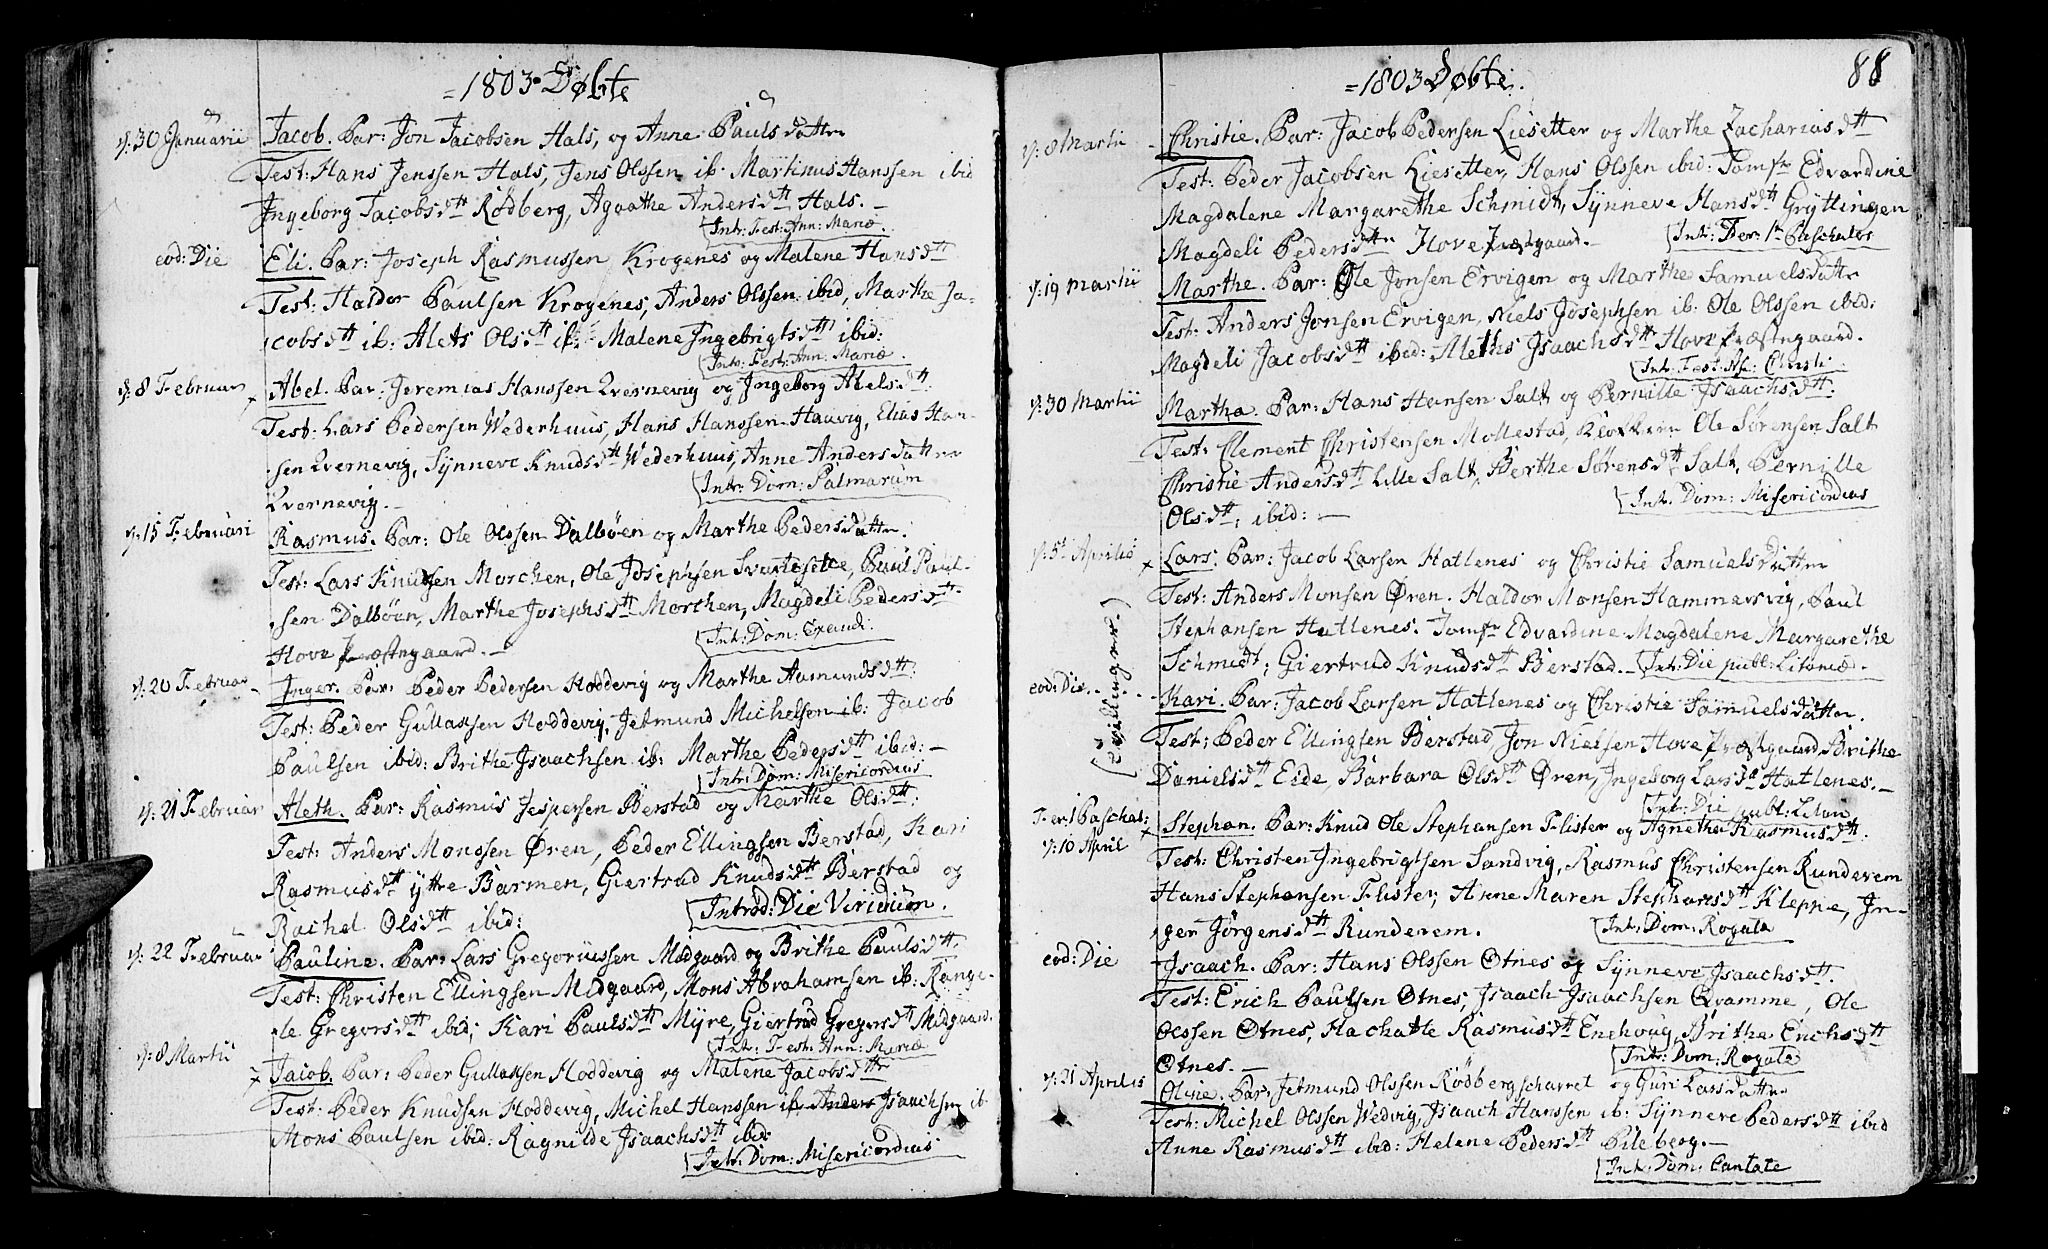 = 1803. Døbte
d: 30 Januarii Jacob. Par: Jon Jacobsen Hals, og Anne Pauls datter
Test: Hans Jenssen Hals, Jens Olssen ib: Martinus Hanssen ibid
Ingeborg Jacobsdtt Rødberg, Agathe Andersdtt Hals. –
Intr: Fest: Ann: Mariæ.
eod: Die Eli. Par: Joseph Rasmussen Krogenes og Malene Hansdtt
Test: Haldor Paulsen Krogenes, Anders Olssen ibid, Marthe Ja-
cobsdtt ib: Alets Olsdtt ib: Malene Ingebrigtsdtt ibid:
Intr: Fest: Ann: Mariæ.
d: 8 Februar Abel. Par: Jeremias Hanssen Qvernevig og Ingeborg Abelsdtt:
Test: Lars Pedersen Wederhuus, Hans Hanssen Haavig, Elias Han-
sen Qvernevig, Synneve Knudsdtt Wederhuus, Anne Anders datter
Qvernevig. –
Intr: Dom: Palmarum
d: 15 Februari Rasmus. Par: Ole Olssen Dalbøen og Marthe Pedersdatter.
Test: Lars Knudsen Morchen, Ole Josephsen Svartesette, Paul Paul-
sen Dalbøen, Marthe Josephsdtt Morchen, Magdeli Pedersdtt
Hove Præstegaard. –
Intr: Dom: Exaudi.
d: 20 Februar Inger. Par: Peder Pedersen Hoddevig og Marthe Aamundsdtt:
Test: Peder Gullaksen Hoddevig, Jetmund Michelsen ib: Jacob
Paulsen ibid: Brithe Isaachsen ib: Marthe Pedersdtt ibid: –
Intr: Dom: Misericordias
d: 21 Februar Aleth. Par: Rasmus Jespersen Berstad og Marthe Olsdtt:
Test: Anders Monssen Øren, Peder Ellingsen Berstad, Kari
Rasmusdtt ytre Barmen, Giertrud Knudsdtt Berstad og
Rachel Olsdtt ibid:
Introd: Die Viridium.
d: 22 Februar Pauline. Par: Lars Gregoriussen Midgaard og Brithe Paulsdtt.
Test: Christen Ellingsen Midgaard, Mons Abrahamsen ib: Rangi-
le Gregorsdtt ibid; Kari Paulsdtt Myre, Giertrud Gregorsdtt Midgaard.
Intr: Fest: Ann: Mariæ
d: 8 Martii Jacob. Par: Peder Gullaksen Hoddevig og Malene Jacobsdtter
Test: Peder Knudsen Hoddevig, Michel Hanssen ib: Anders Isaachsen ib:
Mons Paulsen ibid: Ragnilde Isaachsdtt ibid:
Intr: Dom: Misericordias
= 1803 Døbte.
88
d: 8 Martii Christie. Par: Jacob Pedersen Liesetter og Marthe Zachariasdtt
Test: Peder Jacobsen Liesetter, Hans Olssen ibid: Jomfr Edvardine
Magdalene Margarethe Schmidt, Synneve Hansdtt Gryttingen
Magdeli Pedersdtter Hove Præstgaard. –
Intr: Fer: 1ma Paschatos
d: 19 Martii Marthe. Par: Ole Jonsen Ervigen og Marthe Samuelsdatter
Test: Anders Jonsen Ervigen, Niels Josephsen ib: Ole Olssen ibid:
Magdeli Jacobsdtt ibid: Aleths Isaachsdtt Hove Præstegaard.
Intr: Fest: Asc: Christi
d: 30 Martii Martha. Par: Hans Hansen Salt og Pernille Isaachsdtt:
Test: Clement Christensen Mollestad, Klokkere Ole Sørensen Salt
Christie Andersdtt Lille Salt, Berthe Sørensdtt Salt, Pernille
Olsdtt, ibid: –
Intr: Dom: Misericordias
d: 5t Aprilis Lars. Par: Jacob Larsen Hatlenes og Christie Samuels Datter
Test: Anders Monsen Øren. Haldor Monsen Hammersvig, Paul
Stephansen Hatlenes. Jomfr Edvardine Magdalene Margarethe
Schmidt; Giertrud Knudsdtt Berstad. – Intr: Die publ: Litaniæ.
(Tvillinger.)
eod: Die. Kari. Par: Jacob Larsen Hatlenes og Christie Samuelsdatter.
Test: Peder Ellingsen Berstad, Jon Nielsen Hove Præstgaard, Brithe
Danielsdtt Eide, Barbara Olsdtt Øren, Ingeborg Larsdtt Hatlenes. –
Intr: Die publ: Litan
Fer: 1 Paschat: Stephan. Par: Knud Ole Stephansen Flister og Agnethe Rasmusdtt:
d: 10 April Test: Christen Ingebrigtsen Sandvig, Rasmus Christensen Runderem
Hans Stephansen Flister; Anne Maren Stephansdtt Kleppe, In-
ger Jørgensdtt Runderem.
Intr: Dom: Rogate
eod: Die Isaach. Par: Hans Olssen Otnes og Synneve Isaachsdtt:
Test: Erich Paulsen Otnes, Isaach Isaachsen Qvamme, Ole
Olssen Otnes, Rasmusdtt Brithe Erichsdtt
Otnes. –
Intr: Dom: Rogate
d: 21 Aprilis Oline. Par: Jetmund Olssen Rødbergscharret og Guri Larsdatter
Test: Michel Olssen Wedvig, Isaach Hanssen ib: Synneve Pedersdtt ibid
Anne Rasmusdtt ibid: Helene Pedersdtt Pileberg. –
Intr: Dom: Cantate